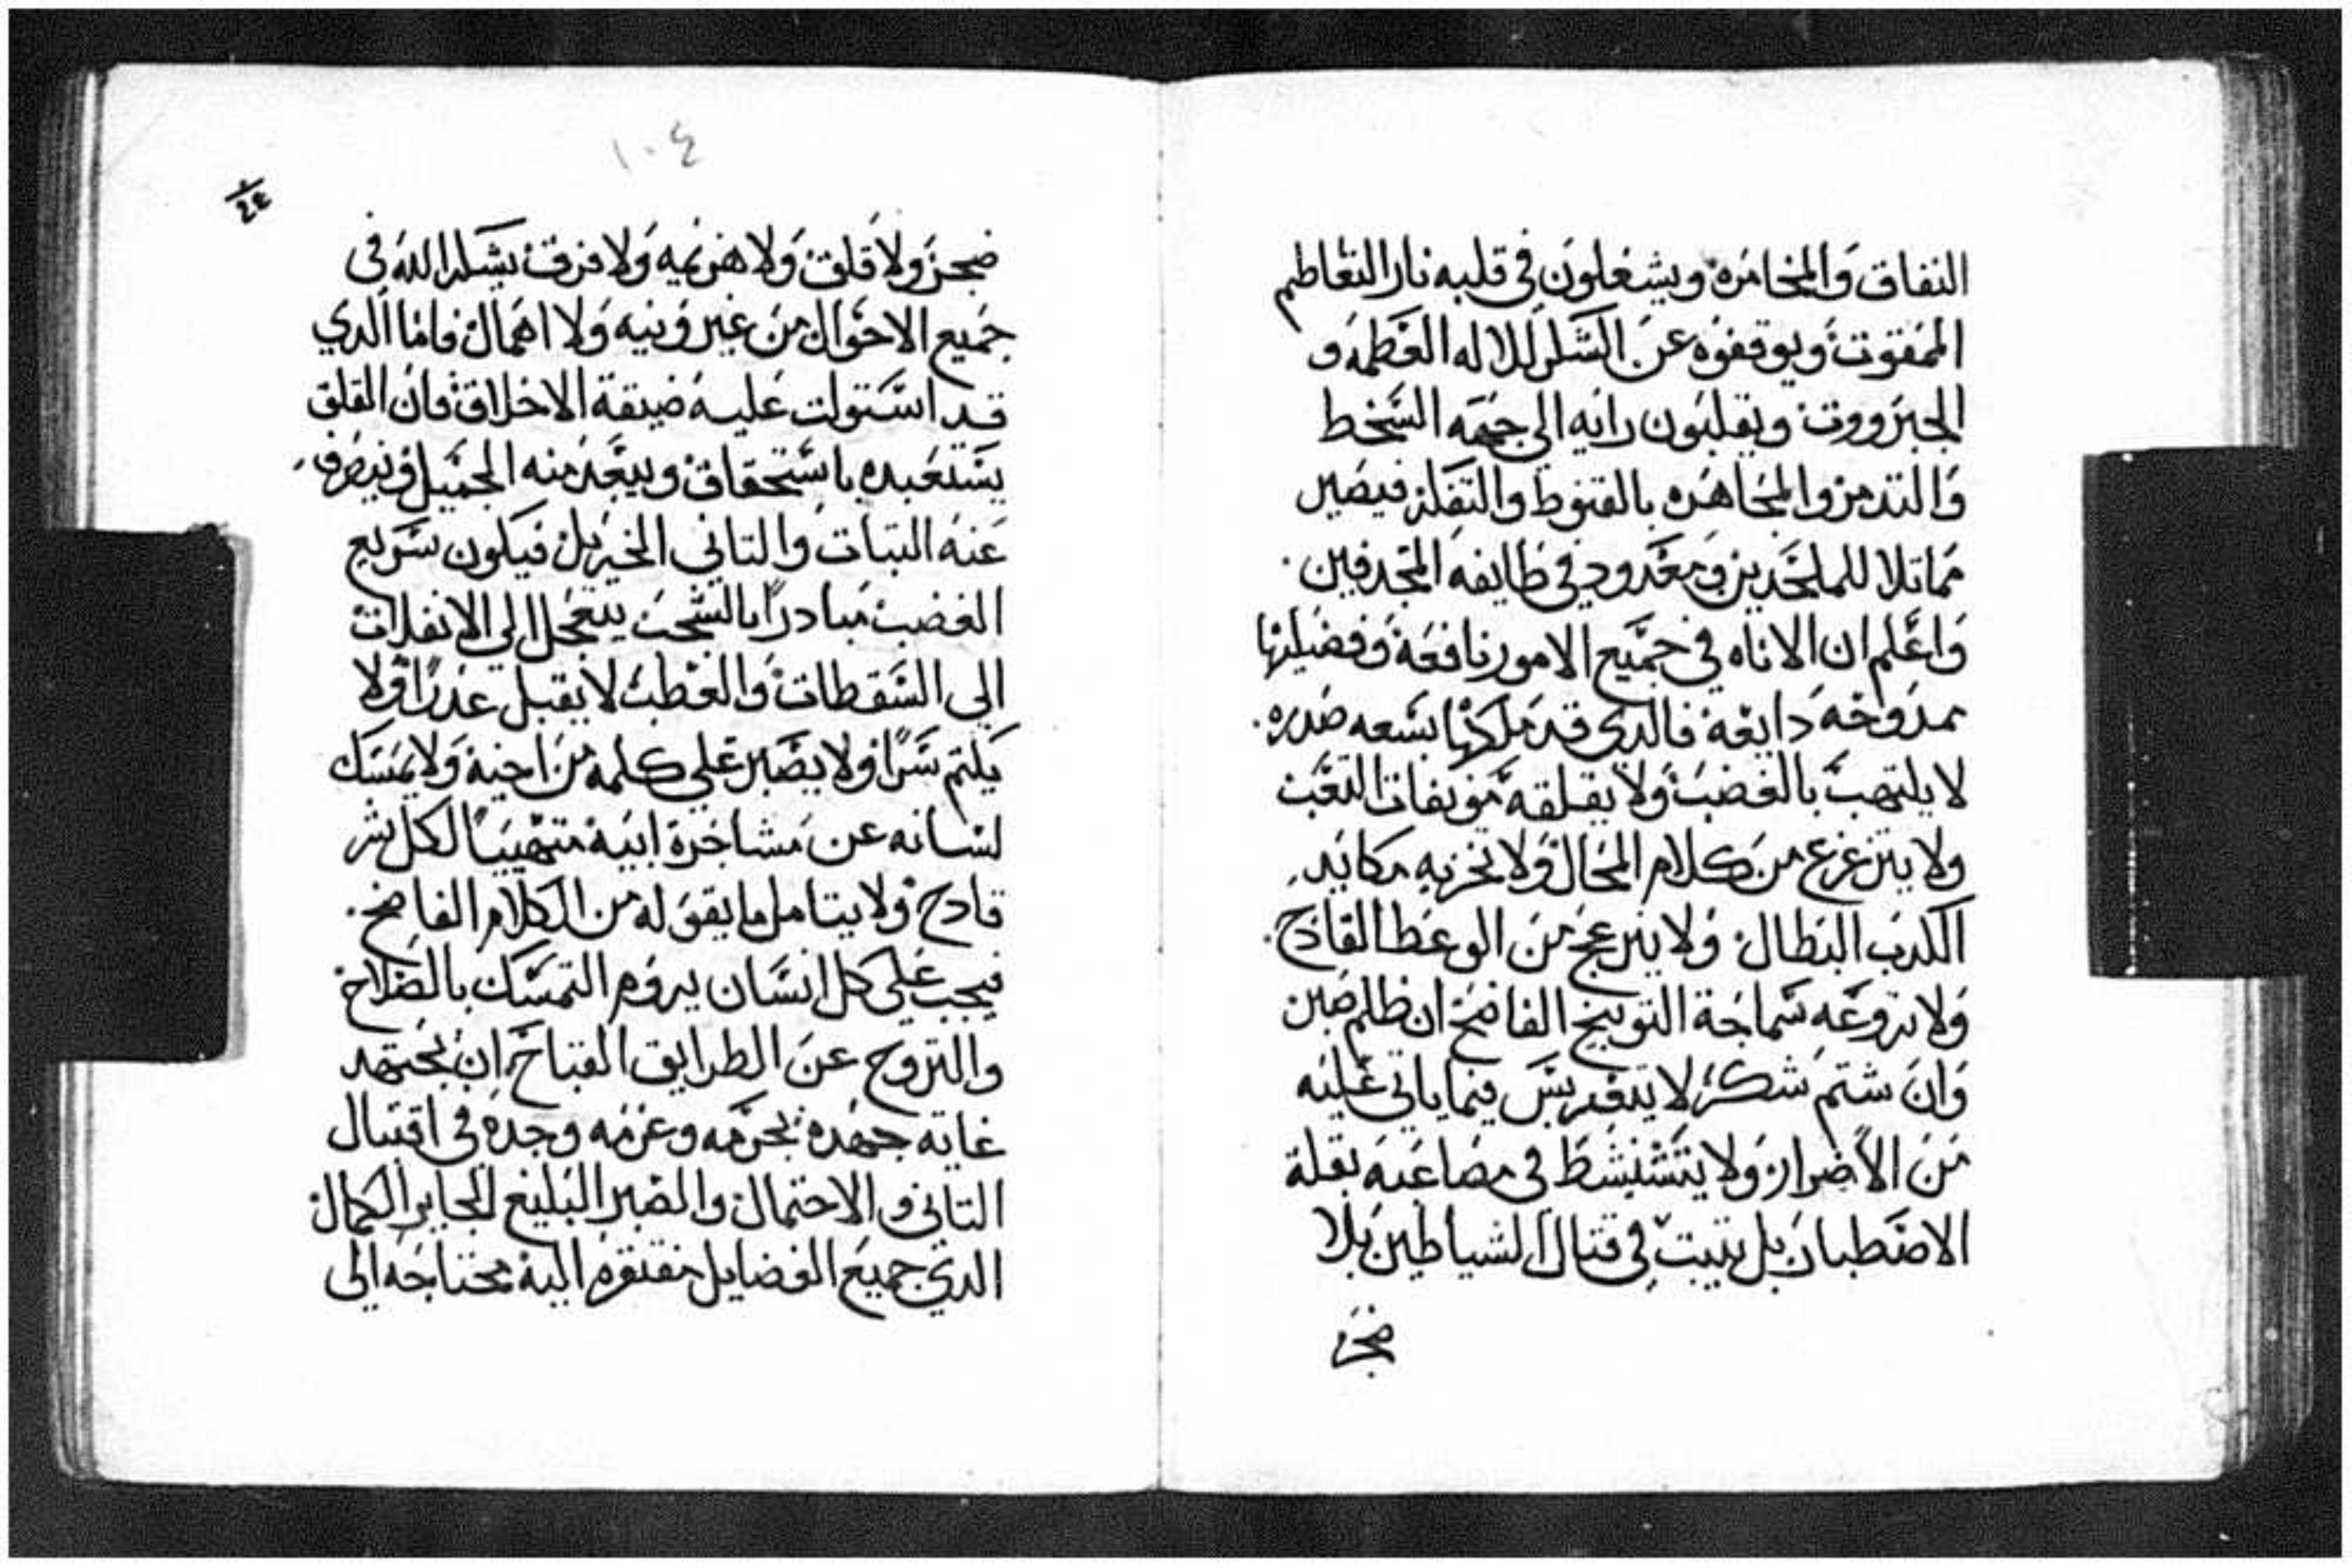 النفاق والمخامره ويشغلون في قلبه نار التعاظم
الممقوت ويوقفوه عن الشكر للاله العظمه و
الجبرووت ويقلبون رايه الي جهة السخط
والتدمر والمجاهره بالقنوط والتقلز فيصير
مماتلا للملحدين ومعدود في طايفه المجدفين
واعلم ان الاناه في جميع الامور نافعة وفضيلتها
ممدوحه دايعة فالدي قد ملكها بسعه صدره
لا يلتهب بالغضب ولا يقلقه التعب
ولا يتزعزع من كلام المحال ولا تخزيه مكايد
الكدب البطال ولا ينزعج من الوعظ القادح
ولا تروعه سماجة التوبيخ الفاضح ان ظلم صبر
وان شتم شكر لا فيما ياتي عليه
من الأضرار ولا في مصاعبه بقلة
الاصطبار بل يتبت في قتال الشياطين بلا
ضجر
١٠٤
ضجر ولا قلق ولا هزيمه ولا فرق يشكر الله في
جميع الاحوال من غير ونيه ولا اهمال فاما الدي
قد استولت عليه ضيقة الاخلاق فان القلق
يستعبده باستحقاق ويبعد منه الجميل وينصرف
عنه التبات والتاني الجزيل فيكون سريع
الغضب مبادرا بالشجب يتعجل الي الانفلات
الي السقطات والعطب لا يقبل عدرا ولا
يكتم سرا ولا يصبر علي كلمه من اخيه ولا يمسك
لسانه عن مشاجرة ابيه متهيبا لكل شر
قادح ولا يتامل ما يقوله من الكلام الفاضح
فيجب علي كل انسان يروم التمسك بالصلاح
والنزوح عن الطرايق القباح ان يجتهد
غاية جهده بحزمه وعزمه وجده في اقتبال
التاني والاحتمال والصبر البليغ الجايز الكمال
الدي جميع الفضايل مفتقره اليه محتاجه الي